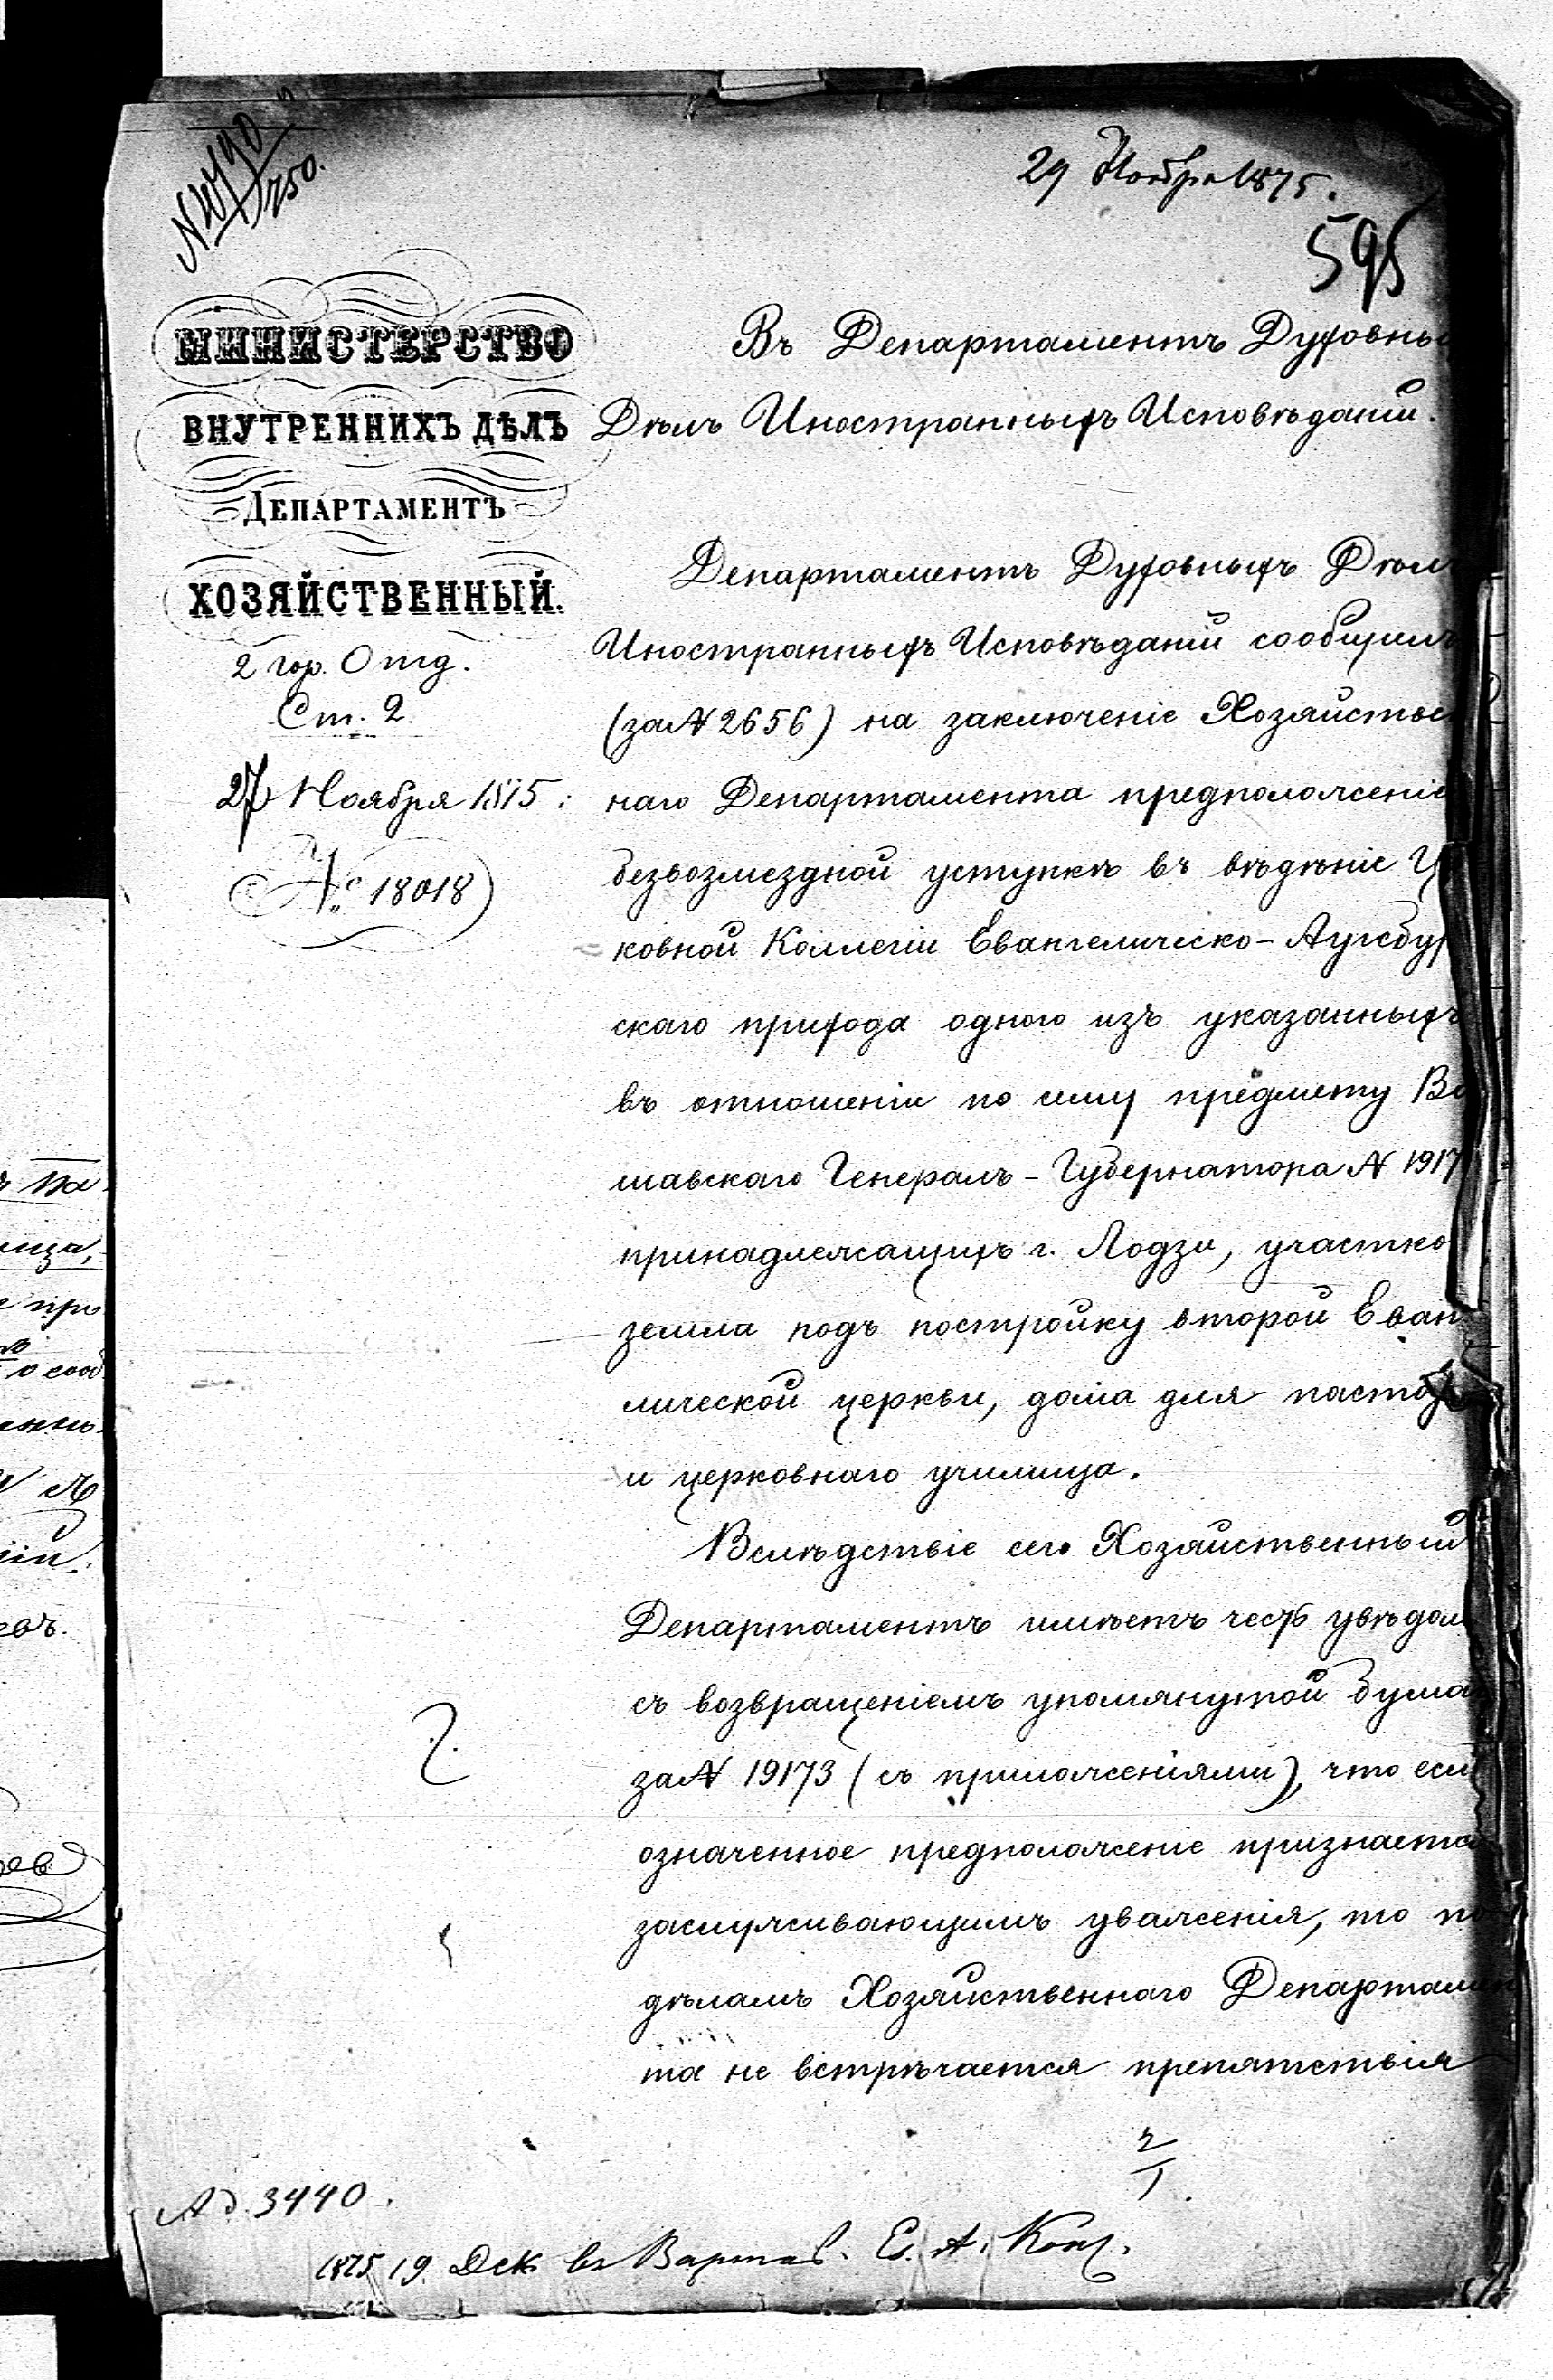 29 Ноября 1875.
595
МИНИСТЕРСТВО
ВНУТРЕННИХЪ ДѢЛЪ
ДЕПАРТАМЕНТЪ
ХОЗЯЙСТВЕННЫЙ.
2 гор. Отд.
Ст. 2.
27 Ноября 1875.
№ 18018
Въ Департаментъ Духовны
Дѣлъ Иностранныхъ Исповѣданій.
Департаментъ Духовныхъ Дѣл
Иностранныхъ Исповѣданій сообщилъ
(за № 2656) на заключеніе Хозяйствен
наго Департамента предположеніе
безвозмездной уступкѣ въ вѣдѣніе Ц
ковной Коллегіи Евангелическо-Аугсбур
скаго прихода одного изъ указанныхъ
въ отношеніи по сему предмету Ва
шавскаго Генералъ-Губернатора № 1917
принадлежащихъ г. Лодзи, участко
земли подъ постройку второй Еван
лической церкви, дома для пастор
и церковнаго училища.
Вслѣдствіе сего Хозяйственный
Департаментъ имѣетъ честь увѣдом
съ возвращеніемъ упомянутой бума
за № 19173 (съ приложеніями), что есл
означенное предположеніе признается
заслуживающимъ уваженія, то по
дѣламъ Хозяйственнаго Департамен
та не встрѣчается препятствія
2/1
Ад. 3440.
1875 19 Дек. въ Варшав. Е. А. Конс.